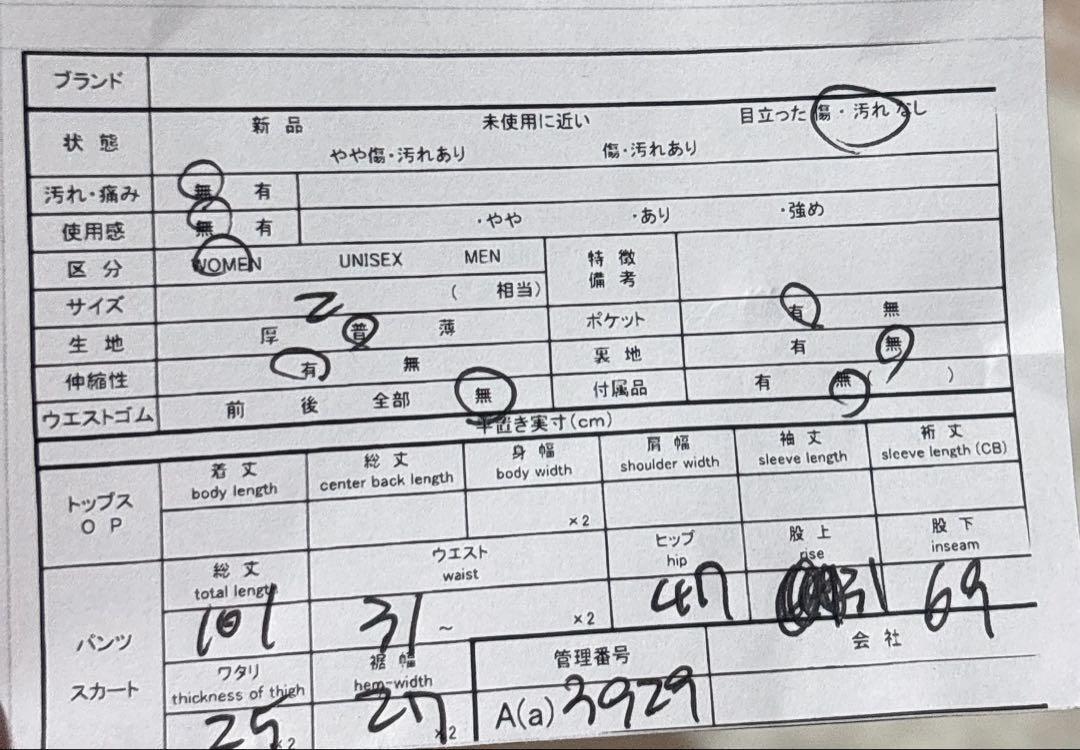 ブランド
状態 新品 未使用に近い 目立った傷・汚れなし
やや傷・汚れあり 傷・汚れあり
汚れ・痛み 無 有
使用感 無 有 ・やや ・あり ・強め
区分 WOMEN UNISEX MEN 特徴
備考
サイズ 2 ( 相当)
生地 厚 普 薄 ポケット 有 無
伸縮性 有 無 裏地 有 無
ウエストゴム 前 後 全部 無 付属品 有 無 ( )
平置き実寸(cm)
トップス
OP
着丈 総丈 身幅 肩幅 袖丈 裄丈
body length center back length body width shoulder width sleeve length sleeve length (CB)
×2
パンツ
スカート
総丈 ウエスト ヒップ 股上 股下
total length waist hip rise inseam
101 31 ~ ×2 47 31 69
ワタリ 裾幅 管理番号 会社
thickness of thigh hem-width
25 ×2 27 ×2 A(a) 3929